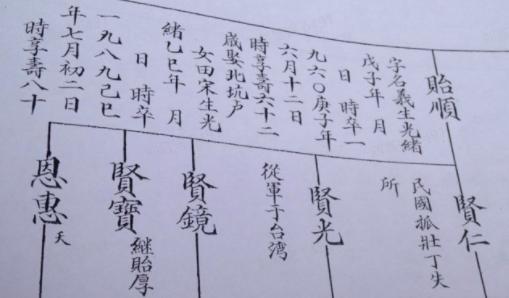 貽順
字名義生光緒
戊子年 月
日 時卒一
九六〇庚子年
六月十二日
時享壽六十二
歲娶北坑户
女田宋生光
緒乙巳年 月
日 時卒
一九八九己巳
年七月初二日
時享壽八十
賢仁
民國孤壯丁失
所
賢光
從軍于台湾
賢鏡
賢寶
繼貽厚
恩惠
夭